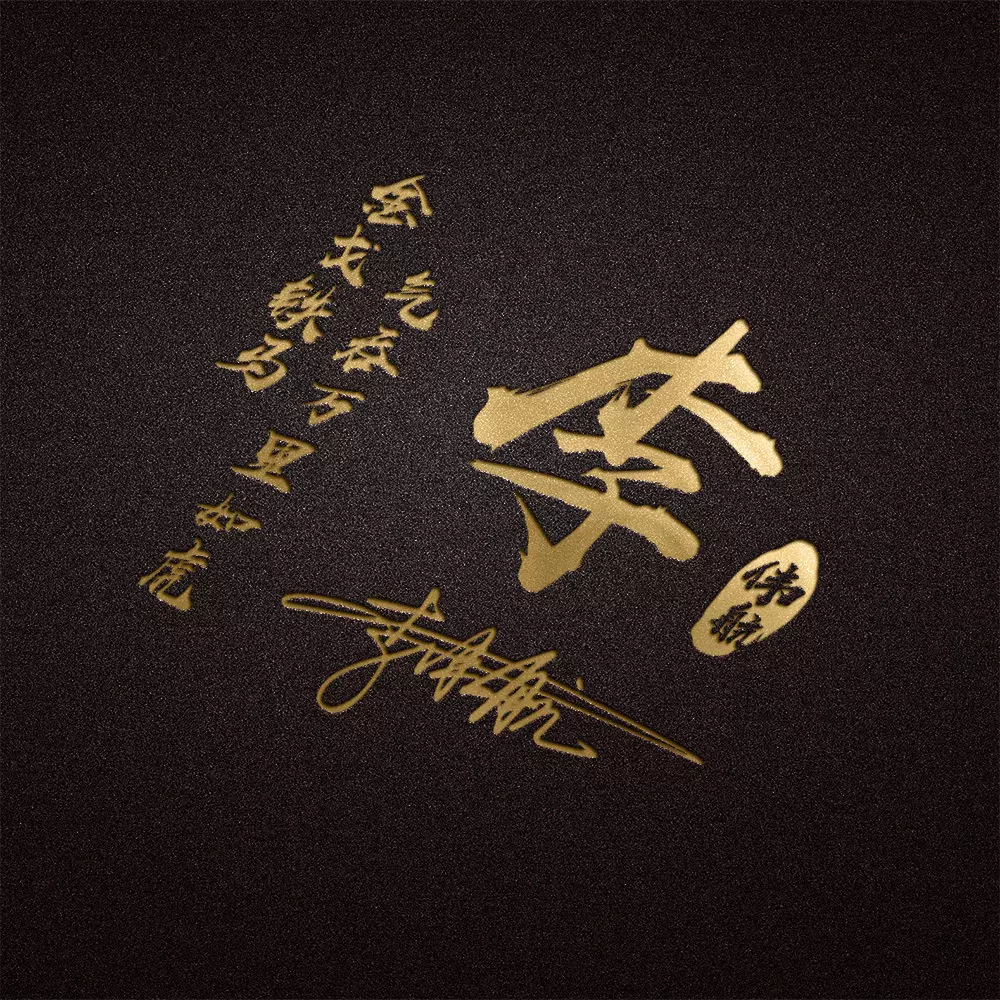 金戈铁马
气吞万里如虎
李
伟航
李伟航